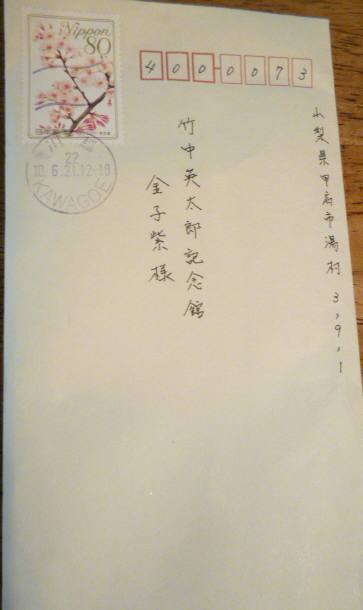 Nippon
80
400-0073
山梨県甲府市湯村3,9,1
竹中英太郎記念館
金子紫様
22
10.6.21.12-18
KAWAGOE